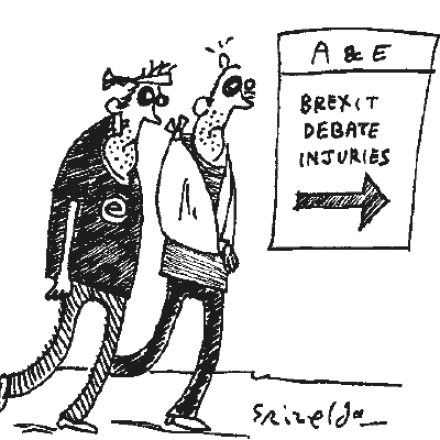 A & E
BREXIT
DEBATE
INJURIES
e
Grizelda